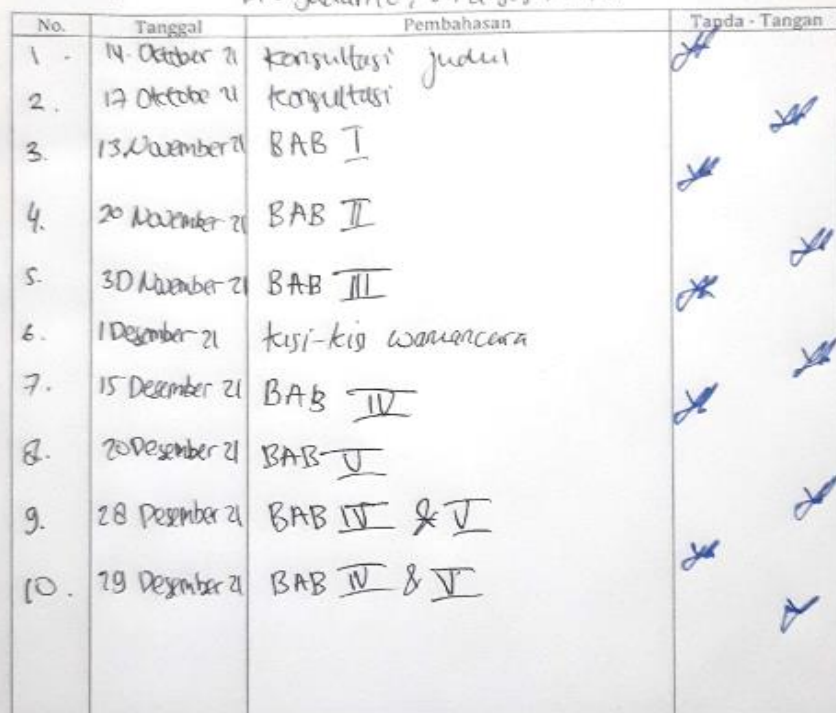 No. Tanggal Pembahasan Tanda - Tangan
1. 14 Oktober 21 Konsultasi judul
2. 17 Oktobe 21 Konsultasi
3. 13 November 21 BAB I
4. 20 November 21 BAB II
5. 30 November 21 BAB III
6. 1 Desember 21 kisi-kisi wawancara
7. 15 Desember 21 BAB IV
8. 20 Desember 21 BAB V
9. 28 Desember 21 BAB IV & V
10. 29 Desember 21 BAB IV & V